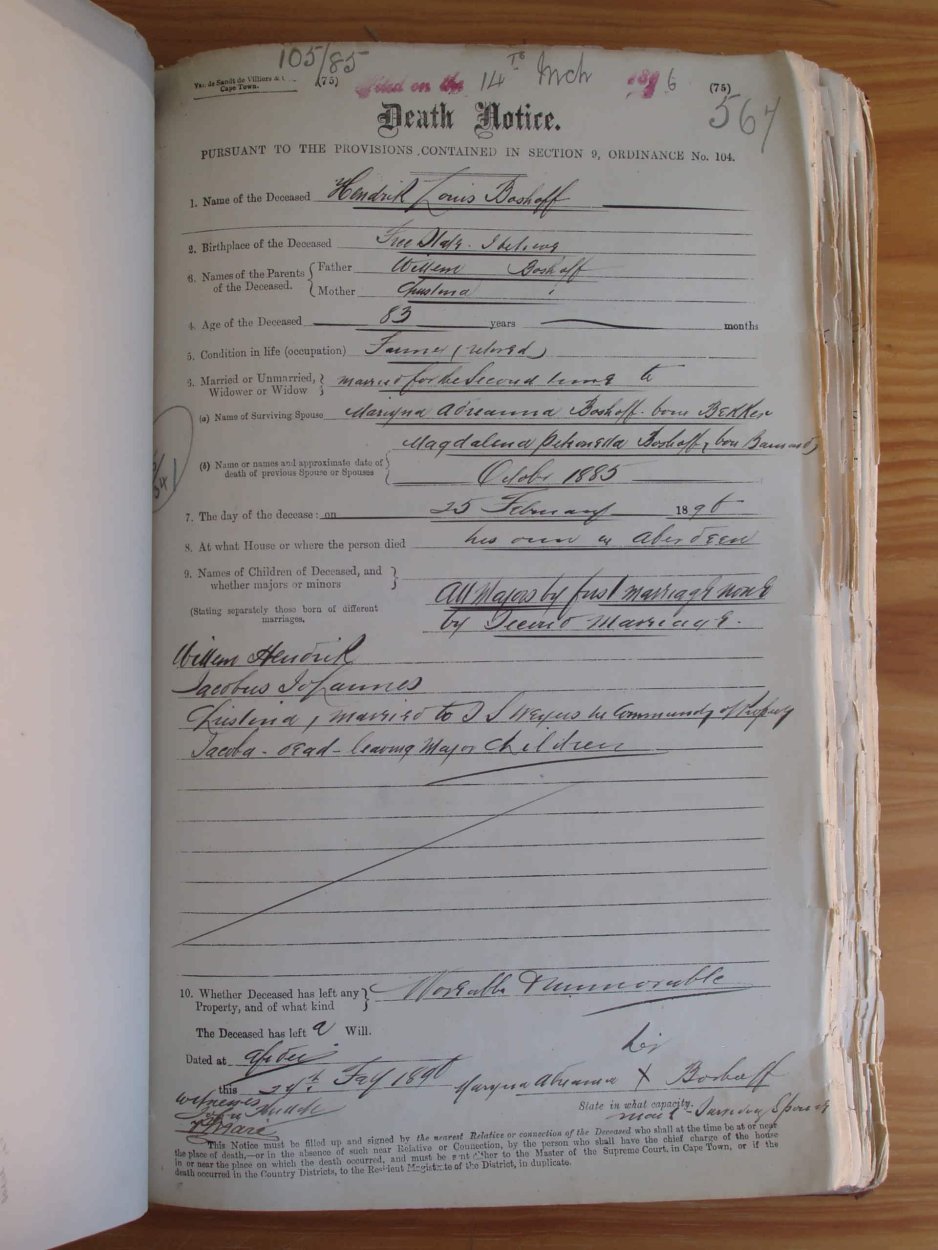 105/85
Van de Sandt de Villiers & C
Cape Town.
(75) Filed on the 14TH Mch 1896 (75)
567
Death Notice.
PURSUANT TO THE PROVISIONS CONTAINED IN SECTION 9, ORDINANCE No. 104.
1. Name of the Deceased Hendrik Louis Boshoff
2. Birthplace of the Deceased Free State I believe
6. Names of the Parents of the Deceased. { Father Willem Boshoff
Mother Christina
4. Age of the Deceased 83 years months
5. Condition in life (occupation) Farmer (retired)
3. Married or Unmarried, Widower or Widow } married for the Second time to
(a) Name of Surviving Spouse Maryna Adreanna Boshoff born Bekker
Magdalena Petronella Boshoff, born Barnard
(b) Name or names and approximate date of death of previous Spouse or Spouses { October 1885
7. The day of the decease: on 25 February 1896
8. At what House or where the person died his own in Aberdeen
9. Names of Children of Deceased, and whether majors or minors }
All Majors by first marriage none
(Stating separately those born of different marriages.
by Second Marriage.
Willem Hendrik
Jacobus Johannes
Christina, married to in Community of Property
Jacoba - dead - leaving Major Children
10. Whether Deceased has left any Property, and of what kind } Moveable & Immovable
The Deceased has left a Will.
her
Dated at
this 29th 1896 Maryna Adreanna X Boshoff
State in what capacity.
witnesses mark Surviving Spouse
This Notice must be filled up and signed by the nearest Relative or connection of the Deceased who shall at the time be at or near
the place of death,—or in the absence of such near Relative or Connection, by the person who shall have the chief charge of the house
in or near the place on which the death occurred, and must be sent either to the Master of the Supreme Court, in Cape Town, or if the
death occurred in the Country Districts, to the Resident Magistrate of the District, in duplicate.